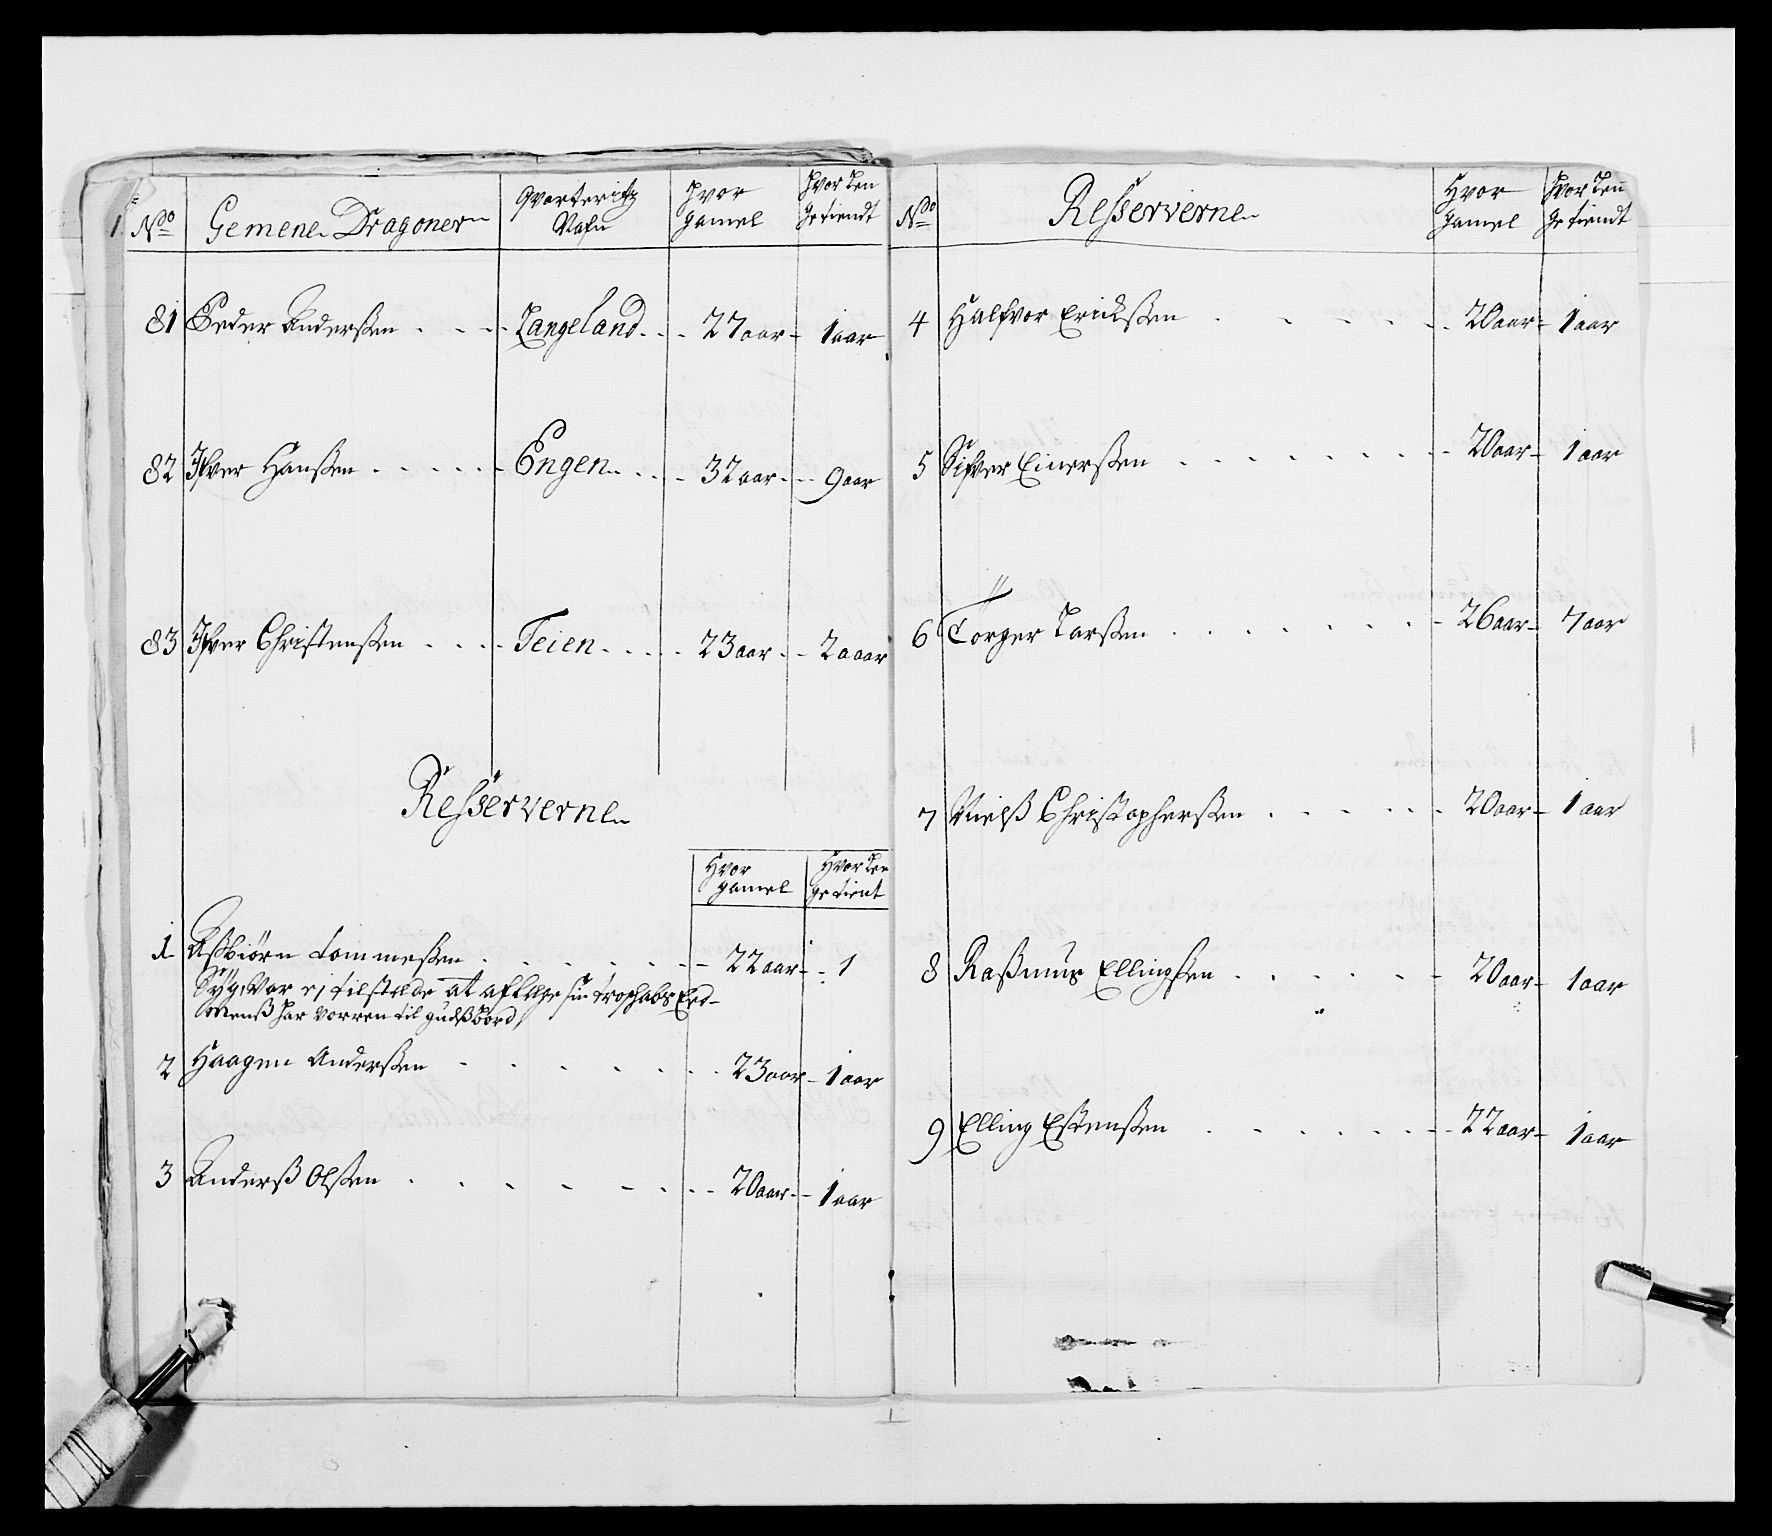 No Gemene Dragoner Qvarteritz Nafn Hvor gamel Hvor Len getiendt
81 Peder Anderßen Langeland 27 aar 1 aar
82 Ifver Hanßen Engen 32 aar 9 aar
83 Ifver Christenßen Teien 23 aar 2 aaar
Resserverne
Hvor gamel Hvor Len getient
1 Asbiørn Tommeßen 22 aar 1
Syg, Var ej tilstede at aflegge sin
Menß har vorren til gudß bord,
2 Haagen Anderßen 23 aar 1 aar
3 Anderß Olßen 20 aar 1 aar
No Resserverne Hvor gamel Hvor Len getiendt
4 Halfvor Erickßen 20 aar 1 aar
5 Sifver Einerßen 20 aar 1 aar
6 Torger Larßen 26 aar 7 aar
7 Nielß Christopherßen 20 aar 1 aar
8 Raßmus Ellingßen 20 aar 1 aar
9 Elling Estenßen 22 aar 1 aar